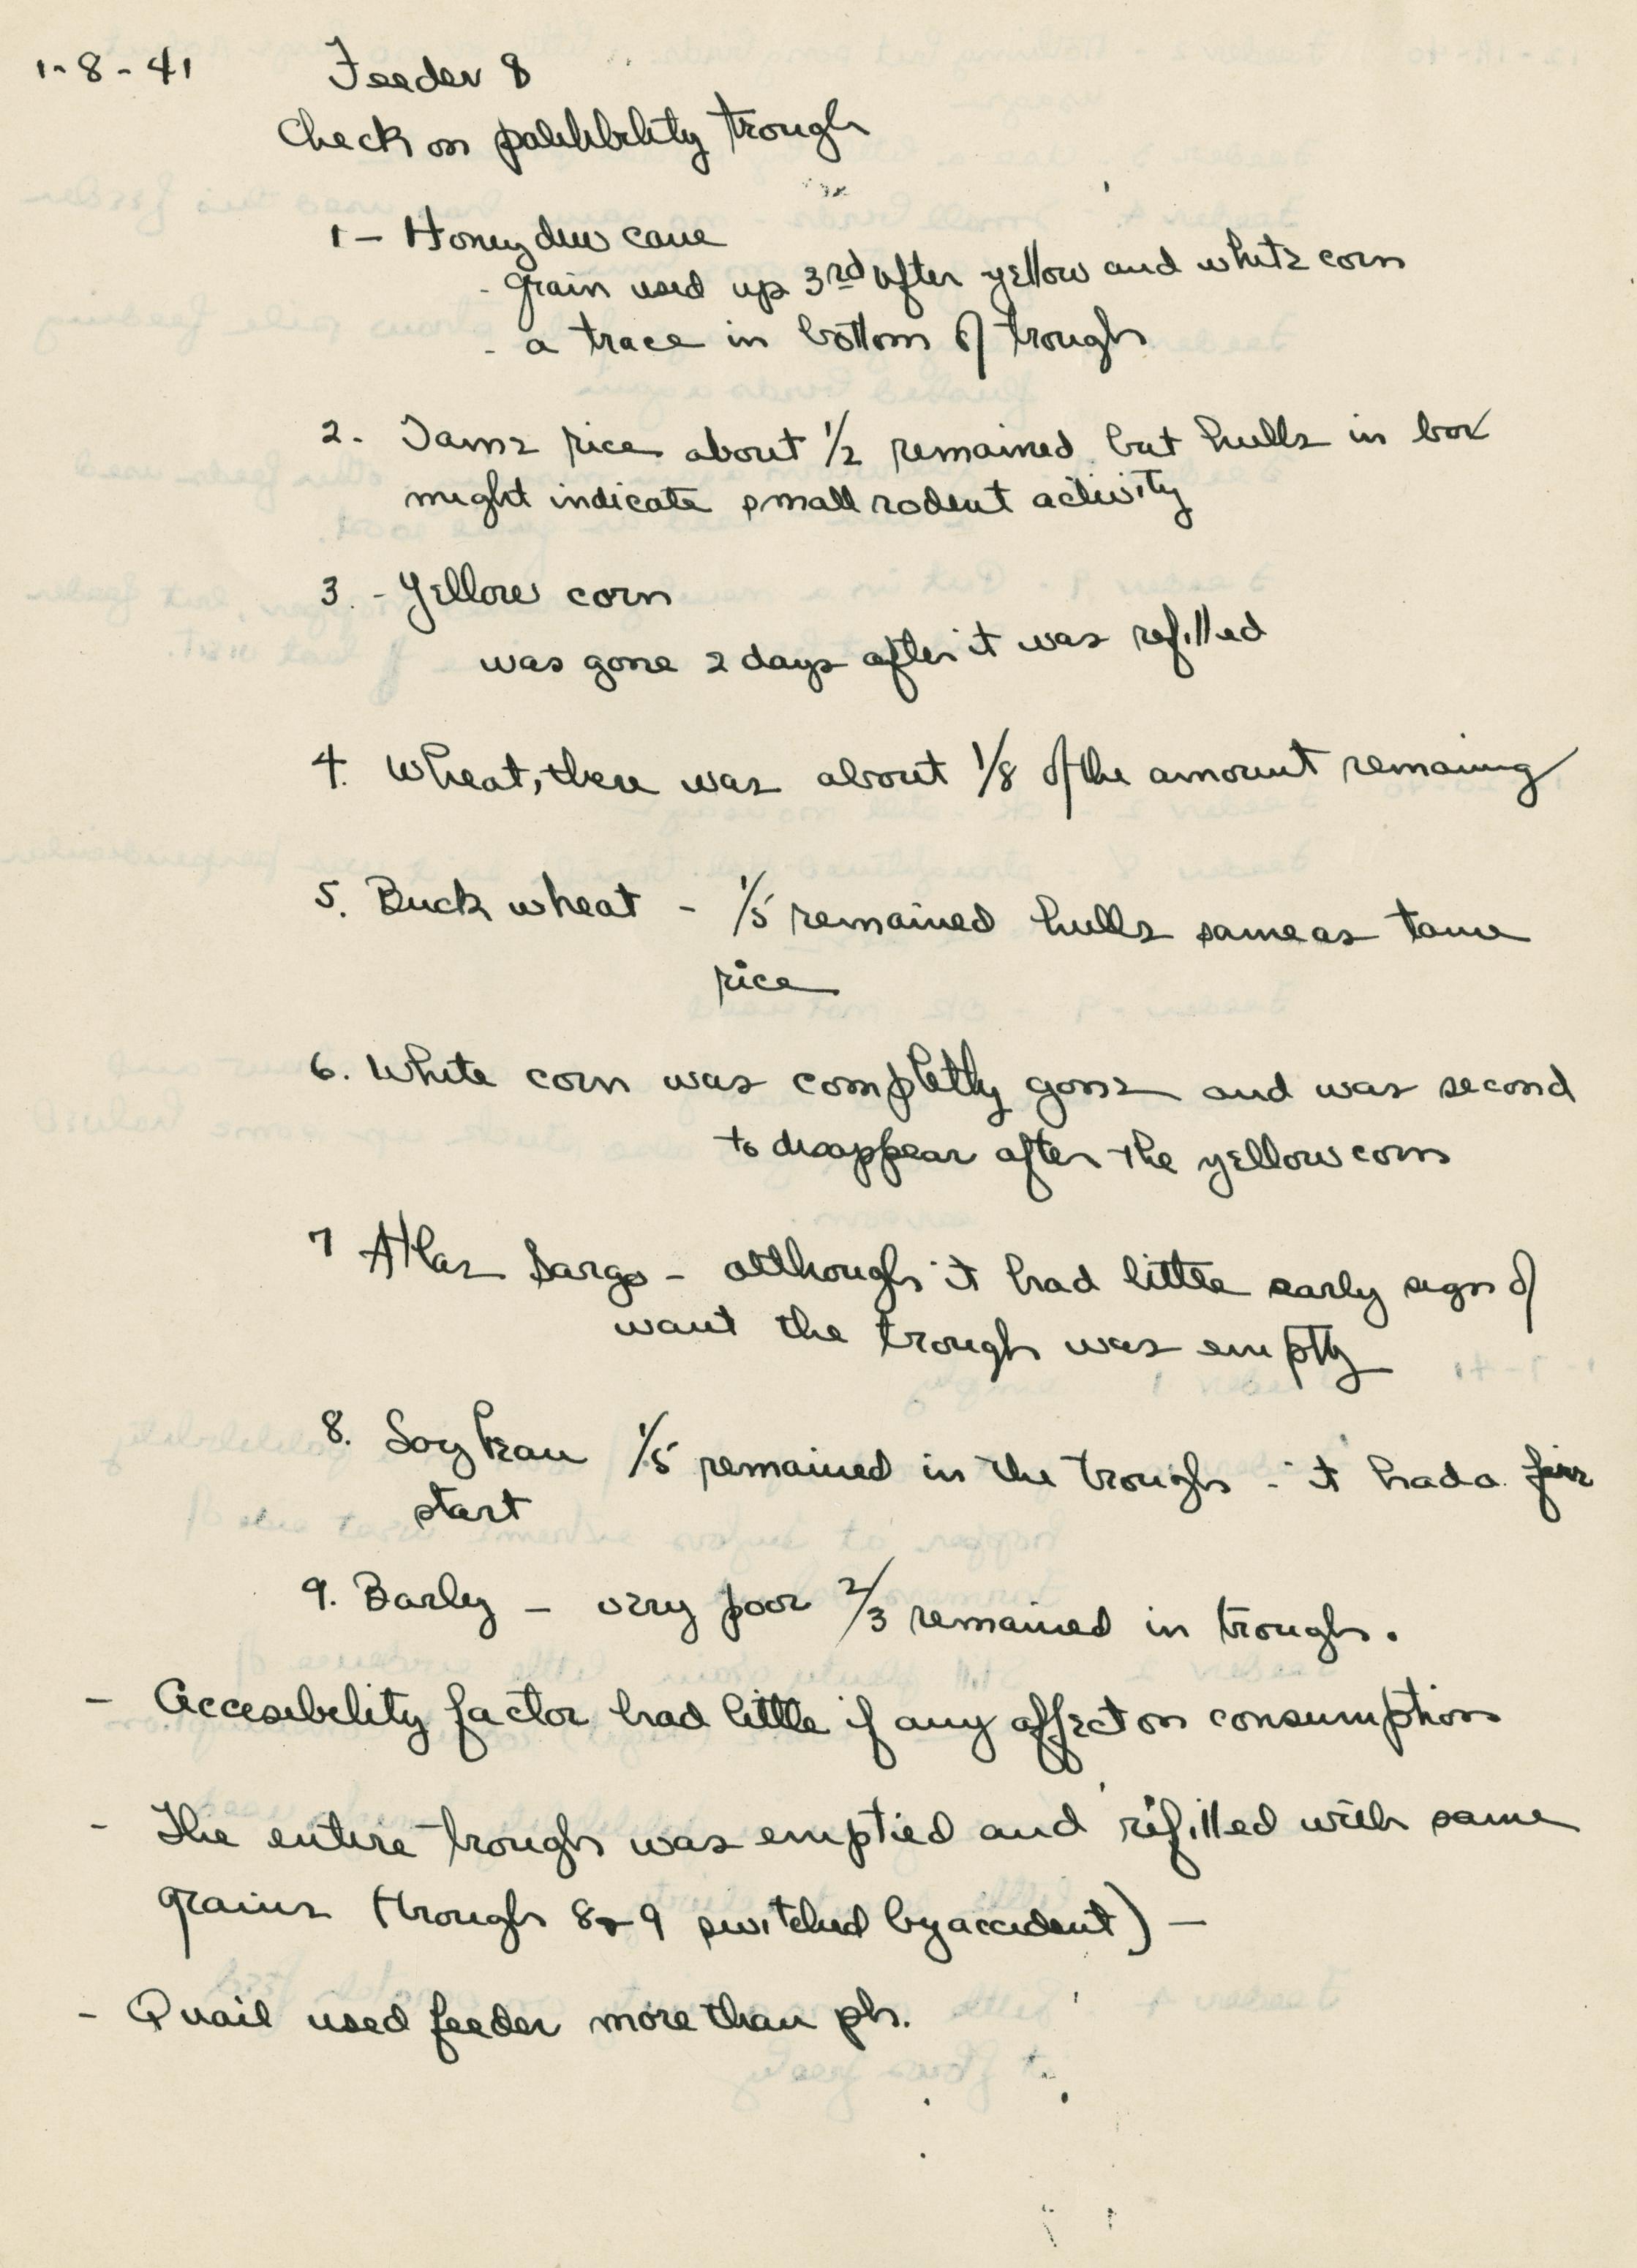 1-8-41 Feeder 8
Check on palibbility trough
1- Honey dew cane
- grain used up 3rd after yellow and white corn
- a trace in bottom of trough
2. Tame rice about 1/2 remained but hulls in box
might indicate small rodent activity
3. - Yellow corn
was gone 2 days after it was refilled
4. Wheat, there was about 1/8 of the amount remaing
5. Buck wheat - 1/5 remained hulls same as tame
rice
6. White corn was completly gone and was second
to disappear after the yellow corn
7 Atlas Sargo - although it had little early sign of
want the trough was empty
8. Soy bean 1/5 remained in the trough - it had a
start
9. Barley - very poor 2/3 remained in trough.
- Accesibility factor had little if any affect on consumption
- The entire trough was emptied and refilled with same
grains (trough 8 & 9 switched by accident) -
- Quail used feeder more than ph.